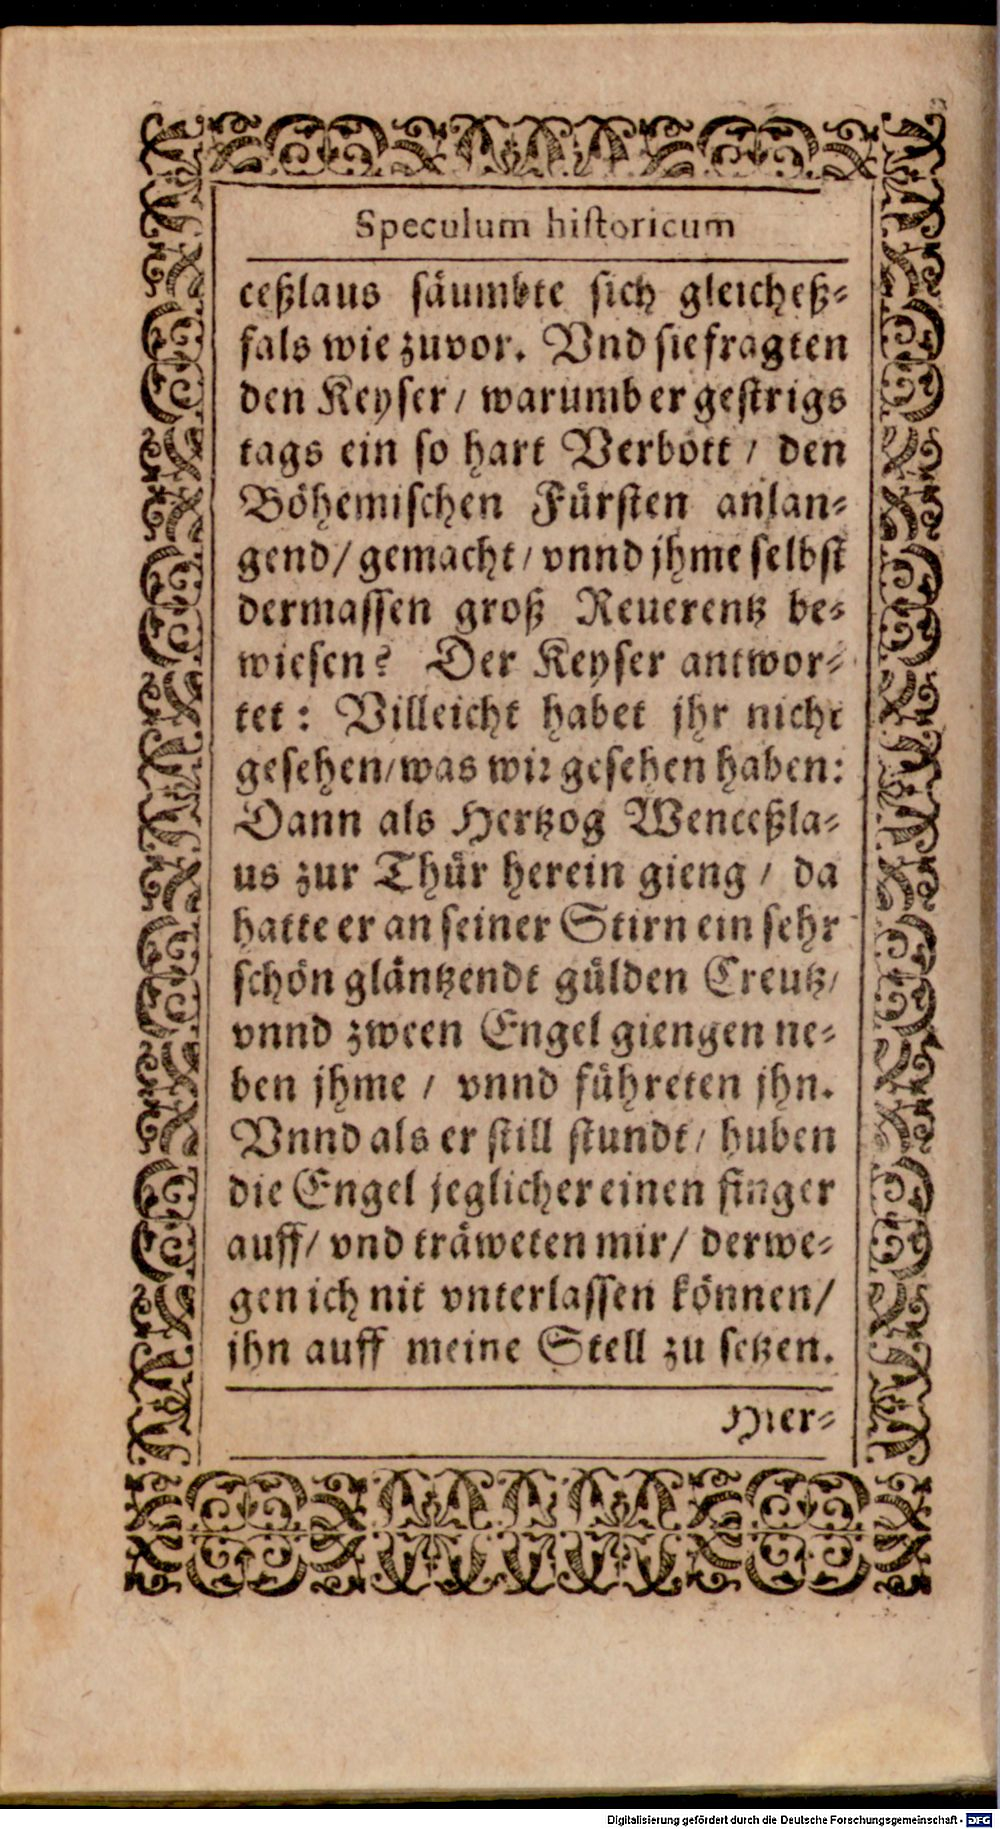 Speculum historicum
ceßlaus säumbte sich gleicheß-
fals wie zuvor. Vnd sie fragten
den Keyser / warumb er gestrigs
tags ein so hart Verbott / den
Böhemischen Fürsten anlan-
gend / gemacht / vnnd jhme selbst
dermassen groß Reuerentz be-
wiesen? Der Keyser antwor-
tet: Villeicht habet jhr nicht
gesehen / was wir gesehen haben:
Dann als Hertzog Wenceßla-
us zur Thür herein gieng / da
hatte er an seiner Stirn ein sehr
schön gläntzendt gülden Creutz /
vnnd zween Engel giengen ne-
ben jhme / vnnd führeten jhn.
Vnnd als er still stundt / huben
die Engel jeglicher einen finger
auff / vnd träweten mir / derwe-
gen ich nit vnterlassen können /
jhn auff meine Stell zu setzen.
Hier-
Digitalisierung gefördert durch die Deutsche Forschungsgemeinschaft - DFG